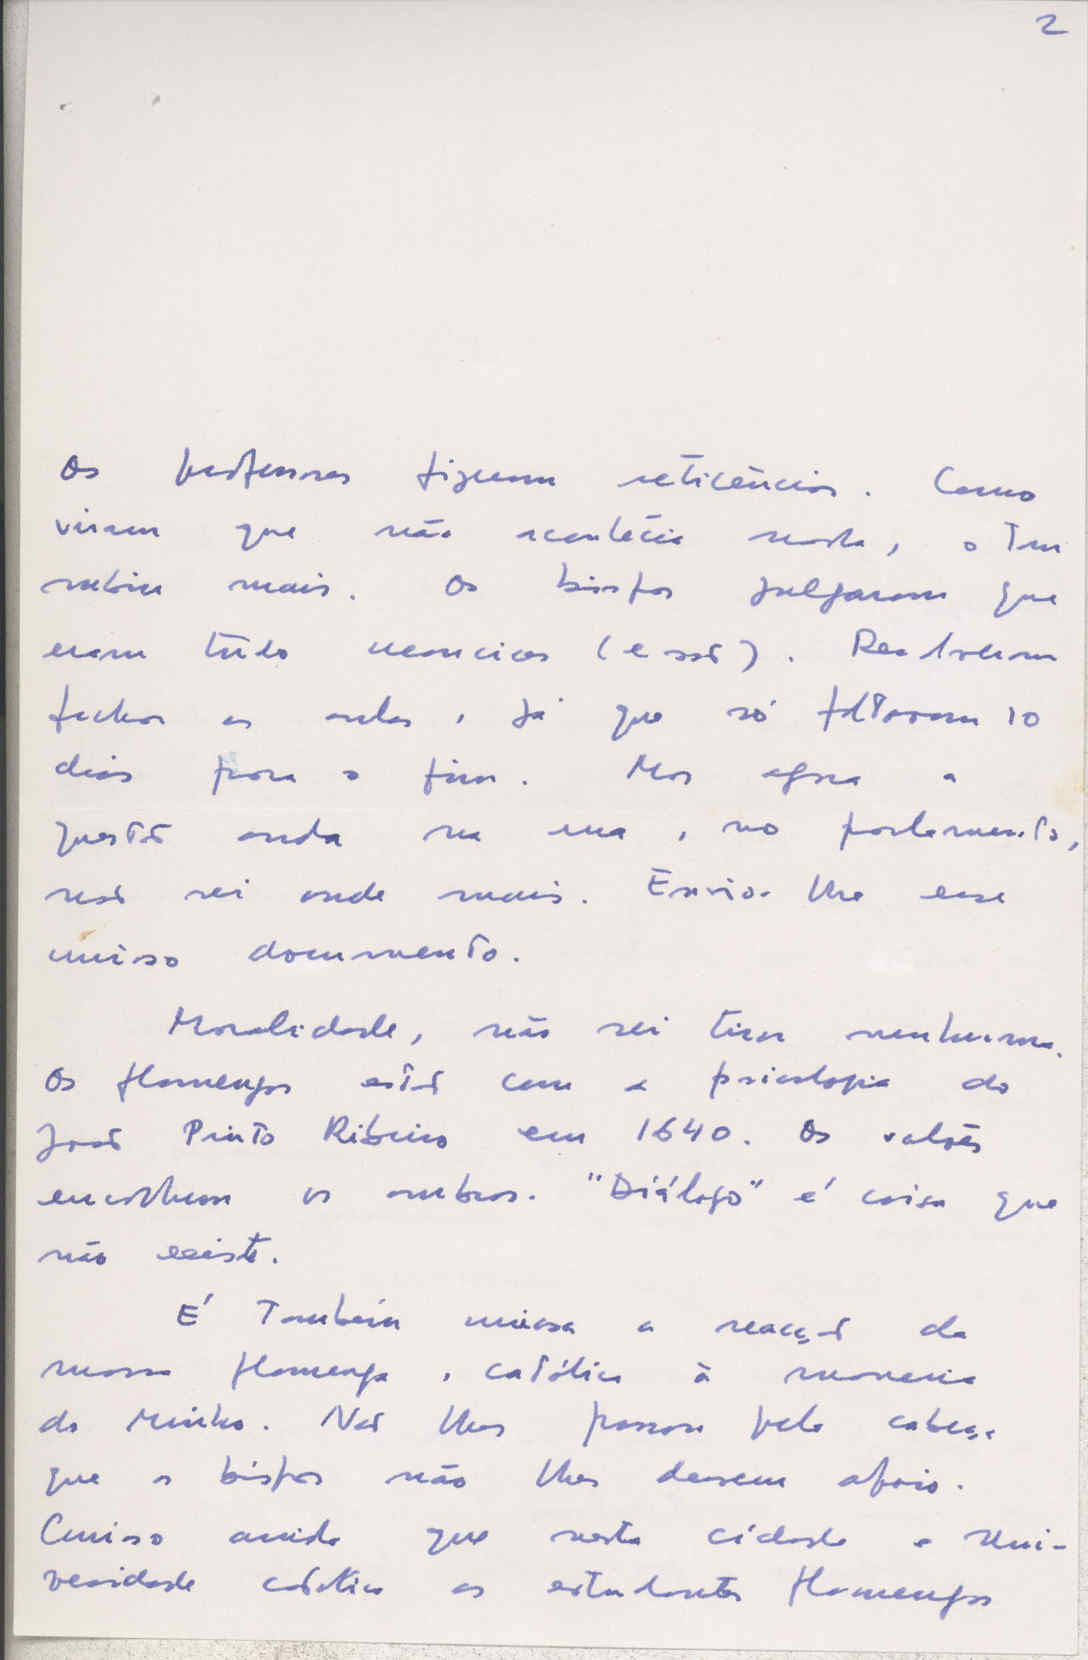 2
Os professores fizeram reticências. Como
viram que não acontecia nada, o tom
subiu mais. Os bispos julgaram que
eram tudo
fechar as aulas, já que só faltavam 10
dias para o fim. Mas agora a
questão anda na rua, no parlamento,
não sei onde mais. Envio-lhe esse
curioso documento.
Moralidade, não sei tirar nenhuma.
Os flamengos estão com a psicologia do
João Pinto Ribeiro em 1640. Os valões
encolhem os ombros. "Diálogo" é coisa que
não existe.
É também curiosa a reacção da
massa flamenga, católica à maneira
do Minho. Não lhes passou pela cabeça
que os bispos não lhes dessem apoio.
Curioso ainda que nesta cidade e Uni-
versidade católica os estudantes flamengos